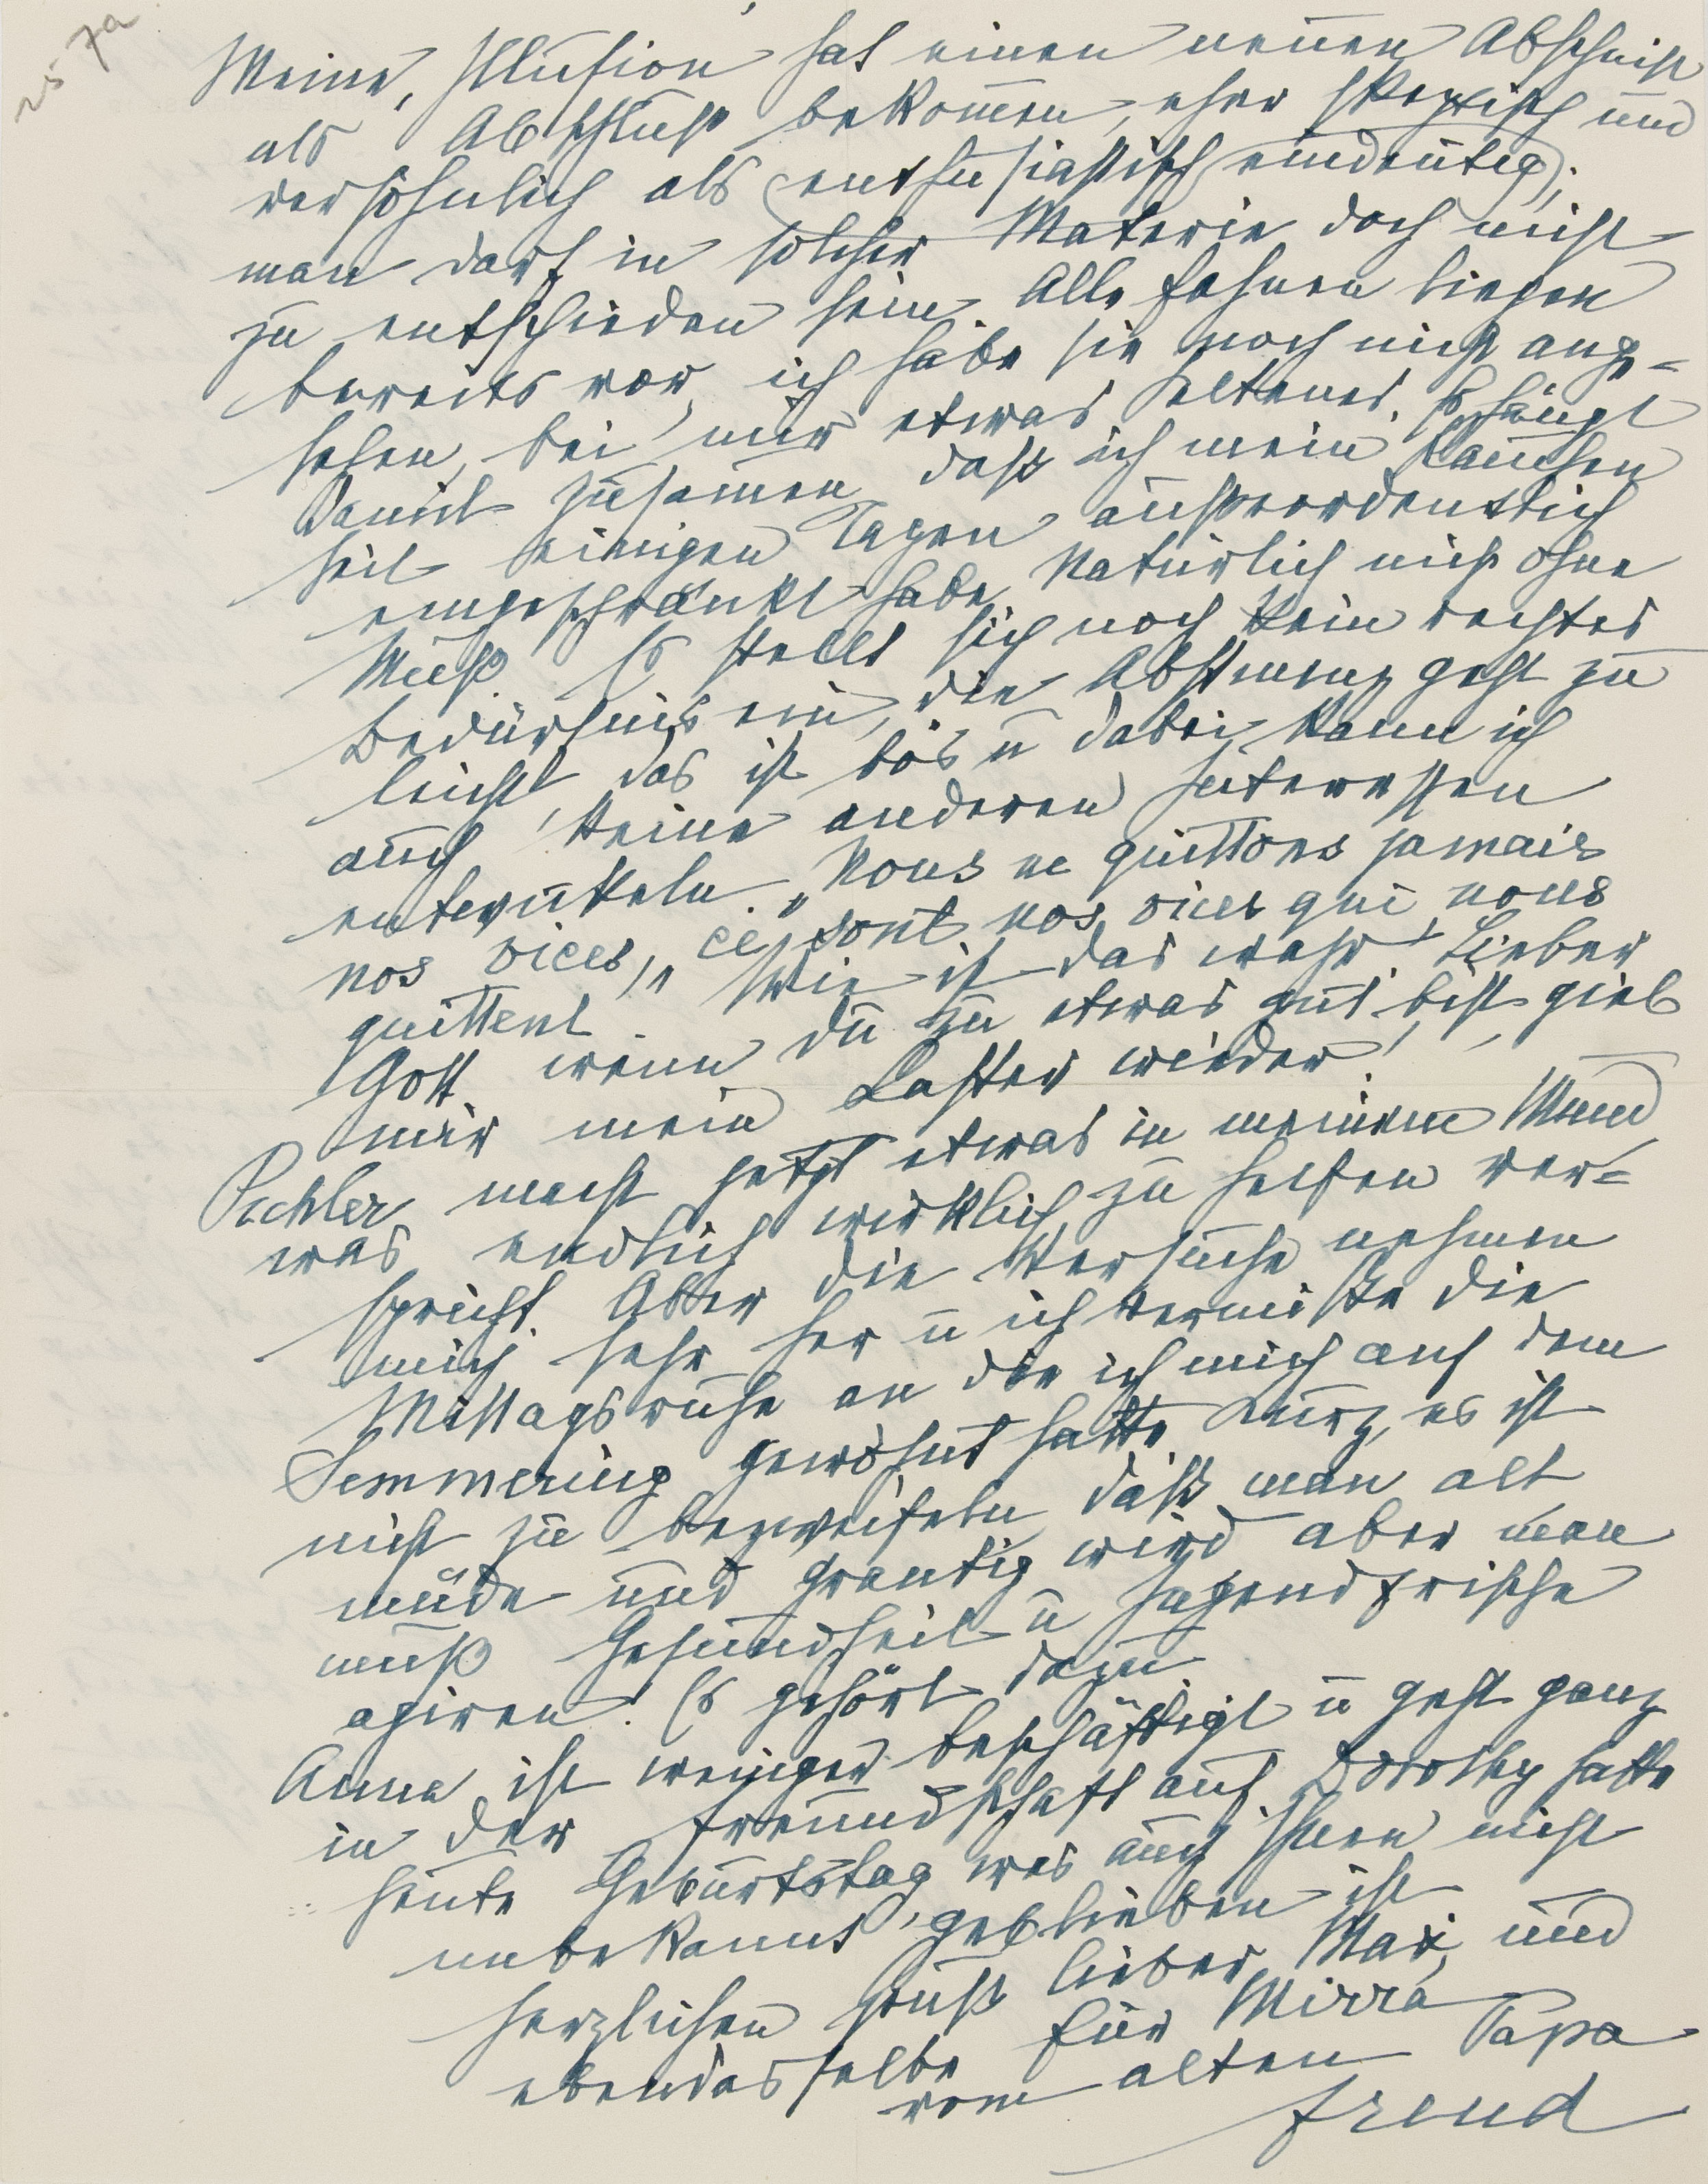 Meine, Illusion hat einen neuen Abschnitt
als Abschluß bekommen, eher skeptisch und
versöhnlich als (enthusiastisch eindeutig);
man darf in solcher Materie doch nicht
zu entschieden sein. Alle Fahnen liegen
bereits vor, ich habe sie noch nicht ange=
sehen, bei mir etwas seltenes. Es hängt
damit zusamen, daß ich mein Rauchen
seit einigen Tagen außerordentlich
eingeschränkt habe, Natürlich nicht ohne
Muß. Es stellt sich noch kein rechtes
Bedürfnis ein, die Abstinenz geht zu
leicht, das ist bös u dabei kann ich
auch keine anderen Interessen
entwickeln. „Nous ne quittons jamais
nos vices,„ ce sont nos vices qui nous
quittent. Wie ist das wahr! Lieber
Gott wenn du zu etwas gut bist, gieb
mir mein Laster wieder!
Pichler macht jetzt etwas in meinem Mund
was endlich wirklich zu helfen ver=
spricht. Aber die Versuche nehmen
mich sehr her u ich vermisse die
Mittagsruhe an die ich mich auf dem
Semmering gewöhnt hatte. Kurz, es ist
nicht zu bezweifeln, daß man alt
müde und grantig wird aber man
muß Gesundheit u Jugendfrische
agiren. Es gehört dazu.
Anna ist weniger beschäftigt u geht ganz
in der Freundschaft auf. Dorothy hatte
heute Geburtstag was auch Ihnen nicht
unbekannt geblieben ist
Herzlichen Gruß lieber Max, und
ebendasselbe für Mirra
vom alten Papa
Freud